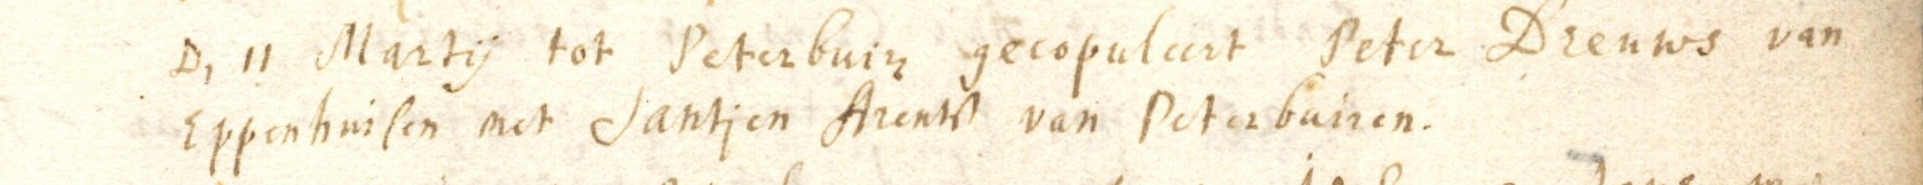 D, 11 Martij tot Peterbuir gecopuleert Peter Dreuws van
Eppenhuisen met Jantjen Arents van Peterbuiren.